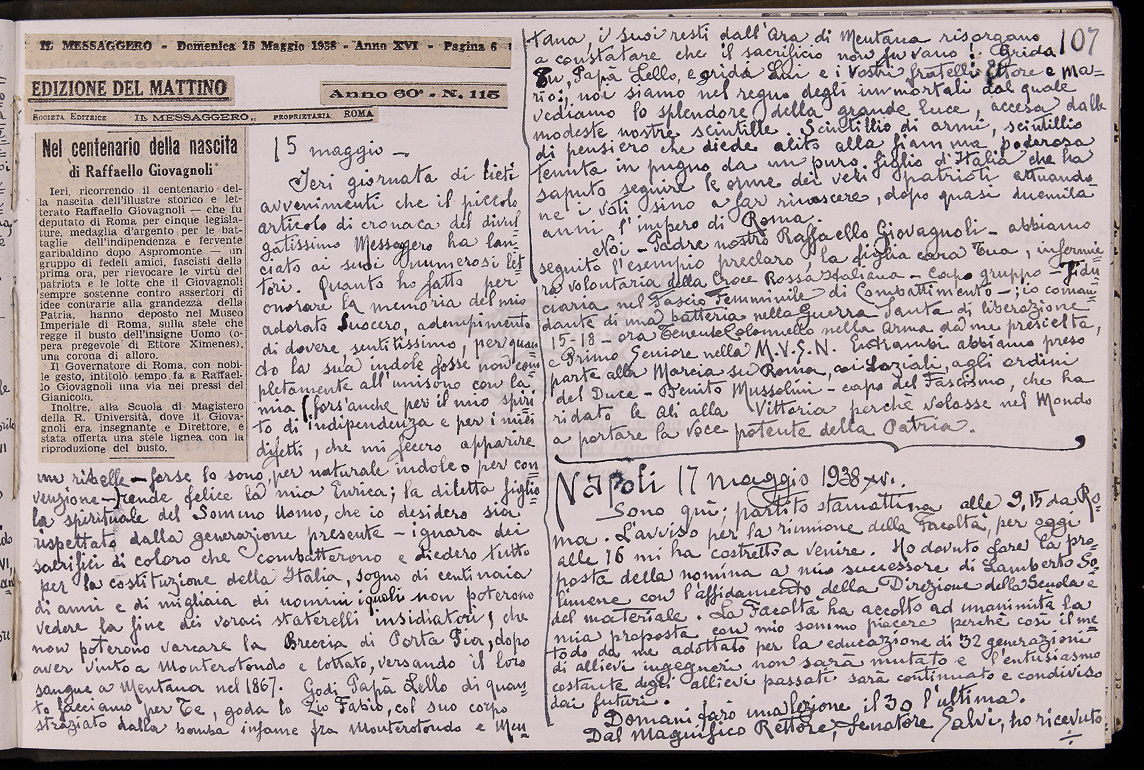 IL MESSAGGERO - Domenica 15 Maggio 1938 - Anno XVI - Pagina 6
EDIZIONE DEL MATTINO
Anno 60° - N. 115
SOCIETA EDITRICE IL MESSAGGERO,, PROPRIETARIA ROMA
Nel centenario della nascita
di Raffaello Giovagnoli
Ieri, ricorrendo il centenario del-
la nascita dell'illustre storico e let-
terato Raffaello Giovagnoli — che fu
deputato di Roma per cinque legisla-
ture, medaglia d'argento per le bat-
taglie dell'indipendenza e fervente
garibaldino dopo Aspromonte — un
gruppo di fedeli amici, fascisti della
prima ora, per rievocare le virtù del
patriota e le lotte che il Giovagnoli
sempre sostenne contro assertori di
idee contrarie alla grandezza della
Patria, hanno deposto nel Museo
Imperiale di Roma, sulla stele che
regge il busto dell'insigne Uomo (o-
pera pregevole di Ettore Ximenes),
una corona di alloro.
Il Governatore di Roma, con nobi-
le gesto, intitolò tempo fa a Raffael-
lo Giovagnoli una via nei pressi del
Gianicolo.
Inoltre, alla Scuola di Magistero
della R. Università, dove il Giova-
gnoli era insegnante e Direttore, è
stata offerta una stele lignea con la
riproduzione del busto.
15 maggio —
Ieri giornata di lieti
avvenimenti che il piccolo
articolo di cronaca del divul
gatissimo Messaggero ha lan
ciato ai suoi numerosi let
tori. Quanto ho fatto per
onorare la memoria del mio
adorato Suocero, adempimento
di dovere, sentitissimo, per quan
do la sua indole fosse non com
pletamente all'unisono con la
mia (fors'anche per il mio spiri
to di indipendenza e per i miei
difetti, che mi fecero apparire
un ribelle — forse lo sono, per naturale indole o per con
venzione — rende felice la mia Enrica; la diletta figlio
la spirituale del Sommo Uomo, che io desidero sia
rispettato dalla generazione presente — ignara dei
sacrifici di coloro che combatterono e diedero tutto
per la costituzione della Italia, sogno di centinaia
di anni e di migliaia di uomini i quali non poterono
vedere la fine dei voraci staterelli insidiatori, che
non poterono varcare la Breccia di Porta Pior, dopo
aver vinto a Monterotondo e lottato, versando il loro
sangue a Mentana nel 1867. Godi Papà Lello di quan
to facciamo per Te, goda lo Zio Fabio, col suo corpo
straziato dalla bomba infame fra Monterotondo e Men
107
tana, i suoi resti dall'Ara di Mentana risorgano
a constatare che il sacrificio non fu vano! Grida
Tu, Papà Lello, e grida Lui e i Vostri fratelli Ettore e Ma-
rio: noi siamo nel regno degli immortali dal quale
vediamo lo splendore della grande luce, accesa dalle
modeste nostre scintille. Scintillio di armi, scintillio
di pensiero che diede alito alla fiamma poderosa
tenuta in pugno da un puro figlio d'Italia che ha
saputo seguire le orme dei veri patrioti attuando
ne i voti sino a far rinascere, dopo quasi duemila
anni, l'impero di Roma.
Noi — Padre nostro Raffaello Giovagnoli — abbiamo
seguito l'esempio preclaro: la figlia cara Tua, infermie
ra volontaria della Croce Rossa Italiana — capo gruppo — Fidu
ciaria nel Fascio Femminile di Combattimento —; io coman
dante di una batteria nella Guerra Santa di liberazione
15-18 — ora Tenente Colonnello nella Arma da me prescelta,
e Primo Seniore nella M.V.S.N. Entrambi abbiamo preso
parte alla Marcia su Roma, coi Laziali, agli ordini
del Duce — Benito Mussolini — capo del Fascismo, che ha
ridato le Ali alla Vittoria perchè volasse nel Mondo
a portare la voce potente della Patria.
Napoli 17 maggio 1938 xvi.
Sono qui; partito stamattina alle 9,15 da Ro-
ma. L'avviso per la riunione della Facoltà, per oggi
alle 16 mi ha costretto a venire. Ho dovuto fare la pro-
posta della nomina a mio successore di Lamberto So-
limene con l'affidamento della Direzione della Scuola e
del materiale. La Facoltà ha accolto ad unanimità la
mia proposta con mio sommo piacere perchè così il me
todo da me adottato per la educazione di 32 generazioni
di allievi ingegneri non sarà mutato e l'entusiasmo
costante degli allievi passati sarà continuato e condiviso
dai futuri.
Domani farò una lezione il 30 l'ultima.
Dal Magnifico Rettore, Senatore Salvi, ho ricevuto